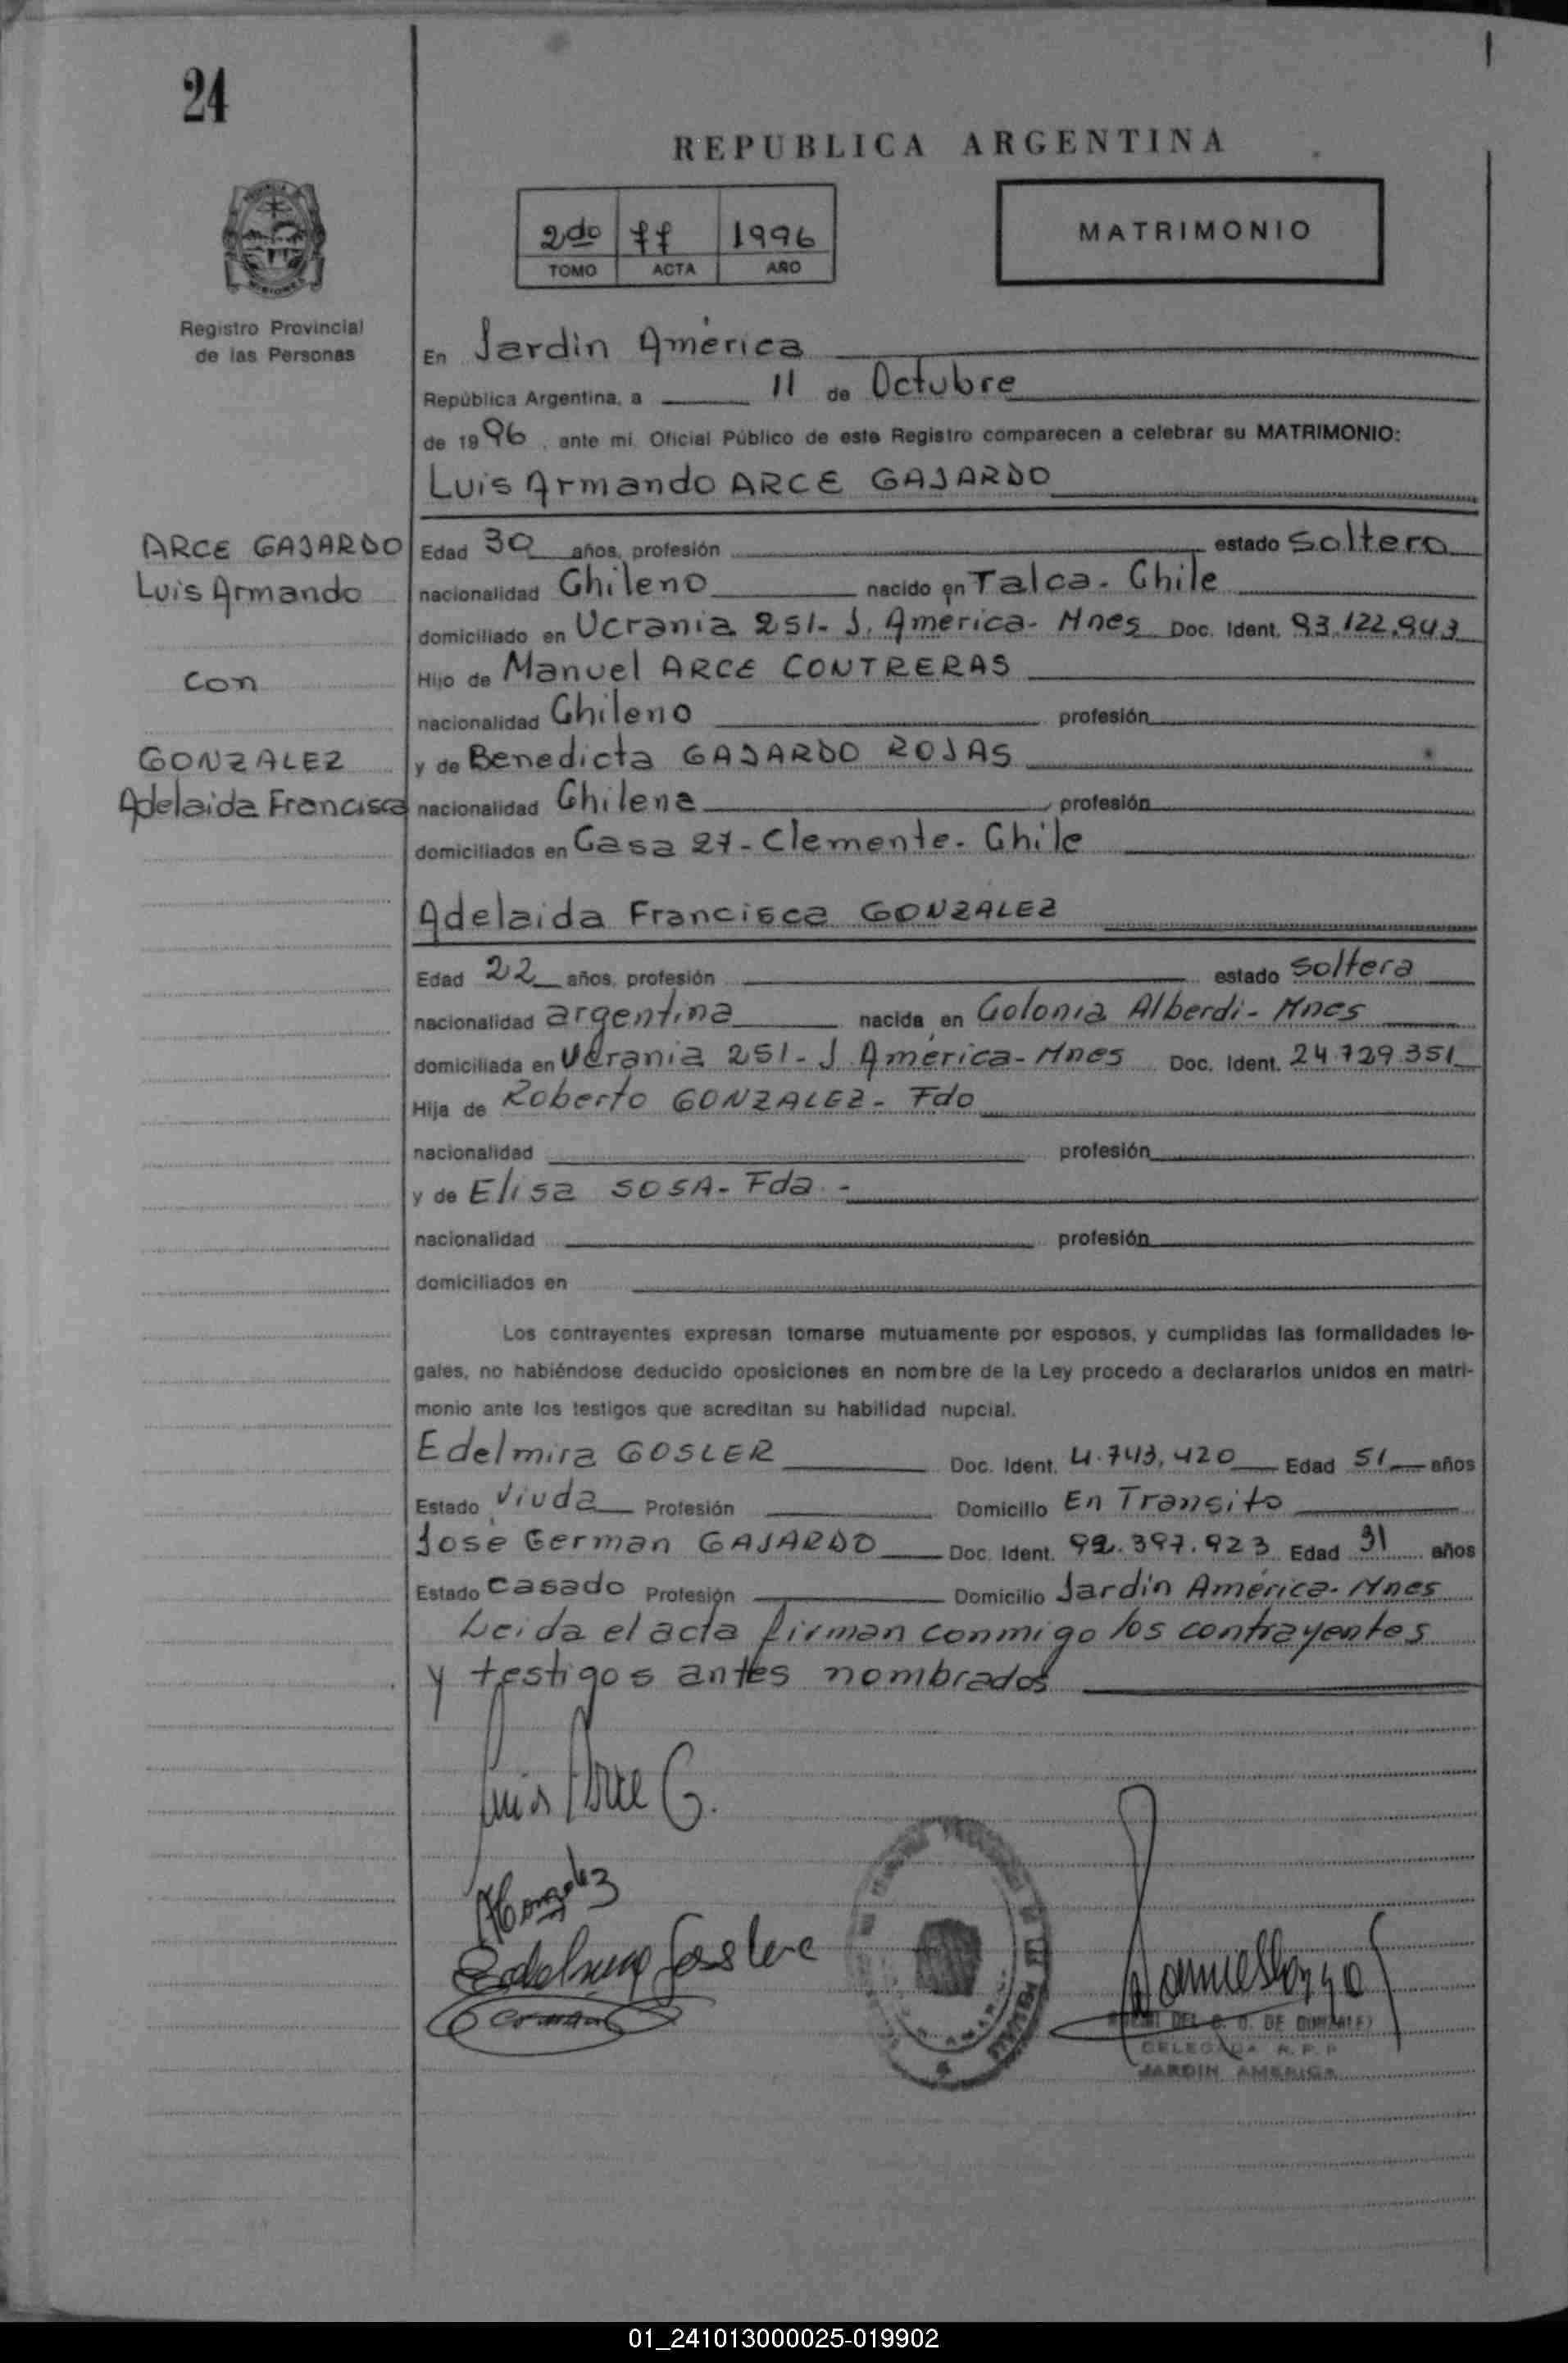 24
REPUBLICA ARGENTINA
2do 77 1996
TOMO ACTA AÑO
MATRIMONIO
MISIONES
Registro Provincial
de las Personas
En Jardin América
República Argentina, a 11 de Octubre
de 1996, ante mi Oficial Público de este Registro comparecen a celebrar su MATRIMONIO:
Luis Armando ARCE GAJARDO
ARCE GAJARDO
Luis Armando
con
GONZALEZ
Adelaida Francisca
Edad 30 años, profesión estado Soltero
nacionalidad Chileno nacido en Talca - Chile
domiciliado en Ucrania 251- J. America- Mnes Doc. Ident. 93.122.943
Hijo de Manuel ARCE CONTRERAS
nacionalidad Chileno profesión
y de Benedicta GAJARDO ROJAS
nacionalidad Chilena profesión
domiciliados en Casa 27 - Clemente - Chile
Adelaida Francisca GONZALEZ
Edad 22 años, profesión estado Soltera
nacionalidad argentina nacida en Colonia Alberdi - Mnes
domiciliada en Ucrania 251- J. América- Mnes Doc. Ident. 24.729.351
Hija de Roberto GONZALEZ - Fdo
nacionalidad profesión
y de Elisa SOSA - Fda -
nacionalidad profesión
domiciliados en
Los contrayentes expresan tomarse mutuamente por esposos, y cumplidas las formalidades le-
gales, no habiéndose deducido oposiciones en nombre de la Ley procedo a declararlos unidos en matri-
monio ante los testigos que acreditan su habilidad nupcial.
Edelmira GOSLER Doc. Ident. 4.743.420 Edad 51 años
Estado Viuda Profesión Domicilio En Transito
José German GAJARDO Doc. Ident. 92.397.923 Edad 31 años
Estado Casado Profesión Domicilio Jardin América- Mnes
Leida el acta firman conmigo los contrayentes
y testigos antes nombrados
Luis Arce G.
AGonzalez
German
DEL C. D. DE GONZALEZ
DELEGADA R. P. P.
JARDIN AMERICA
01_241013000025-019902